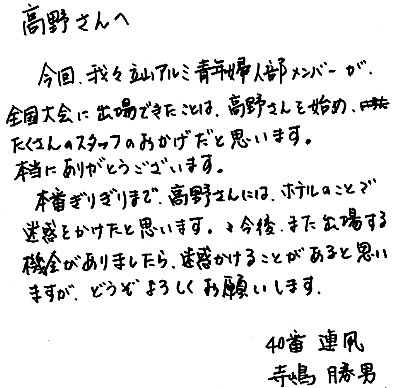 高野さんへ
今回、我々立山アルミ青年婦人部メンバーが、
全国大会に出場できたことは、高野さんを始め、
たくさんのスタッフのおかげだと思います。
本当にありがとうございます。
本番ぎりぎりまで、高野さんには、ホテルのことで
迷惑をかけたと思います。今後、また出場する
機会がありましたら、迷惑かけることがあると思い
ますが、どうぞよろしくお願いします。
40番 連凧
寺嶋 勝男